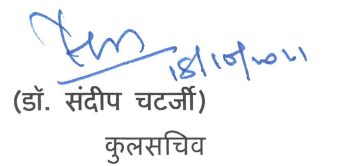 18/10/2021
(डॉ. संदीप चटर्जी)
कुलसचिव